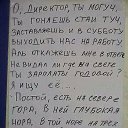 О, ДИРЕКТОР, ТЫ МОГУЧ,
ТЫ ГОНЯЕШЬ СТАИ ТУЧ,
ЗАСТАВЛЯЕШЬ И В СУББОТУ
ВЫХОДИТЬ НАС НА РАБОТУ
АЛЬ ОТКАЖЕШЬ МНЕ В ОТВЕТЕ
НЕ ВИДАЛ ЛИ ГДЕ НА СВЕТЕ
ТЫ ЗАРПЛАТЫ ГОДОВОЙ?
Я ИЩУ ЕЁ...
- ПОСТОЙ, ЕСТЬ НА СЕВЕРЕ
ГОРА, В НЕЙ ГЛУБОКАЯ
НОРА, В ТОЙ НОРЕ НА ТРЁХ